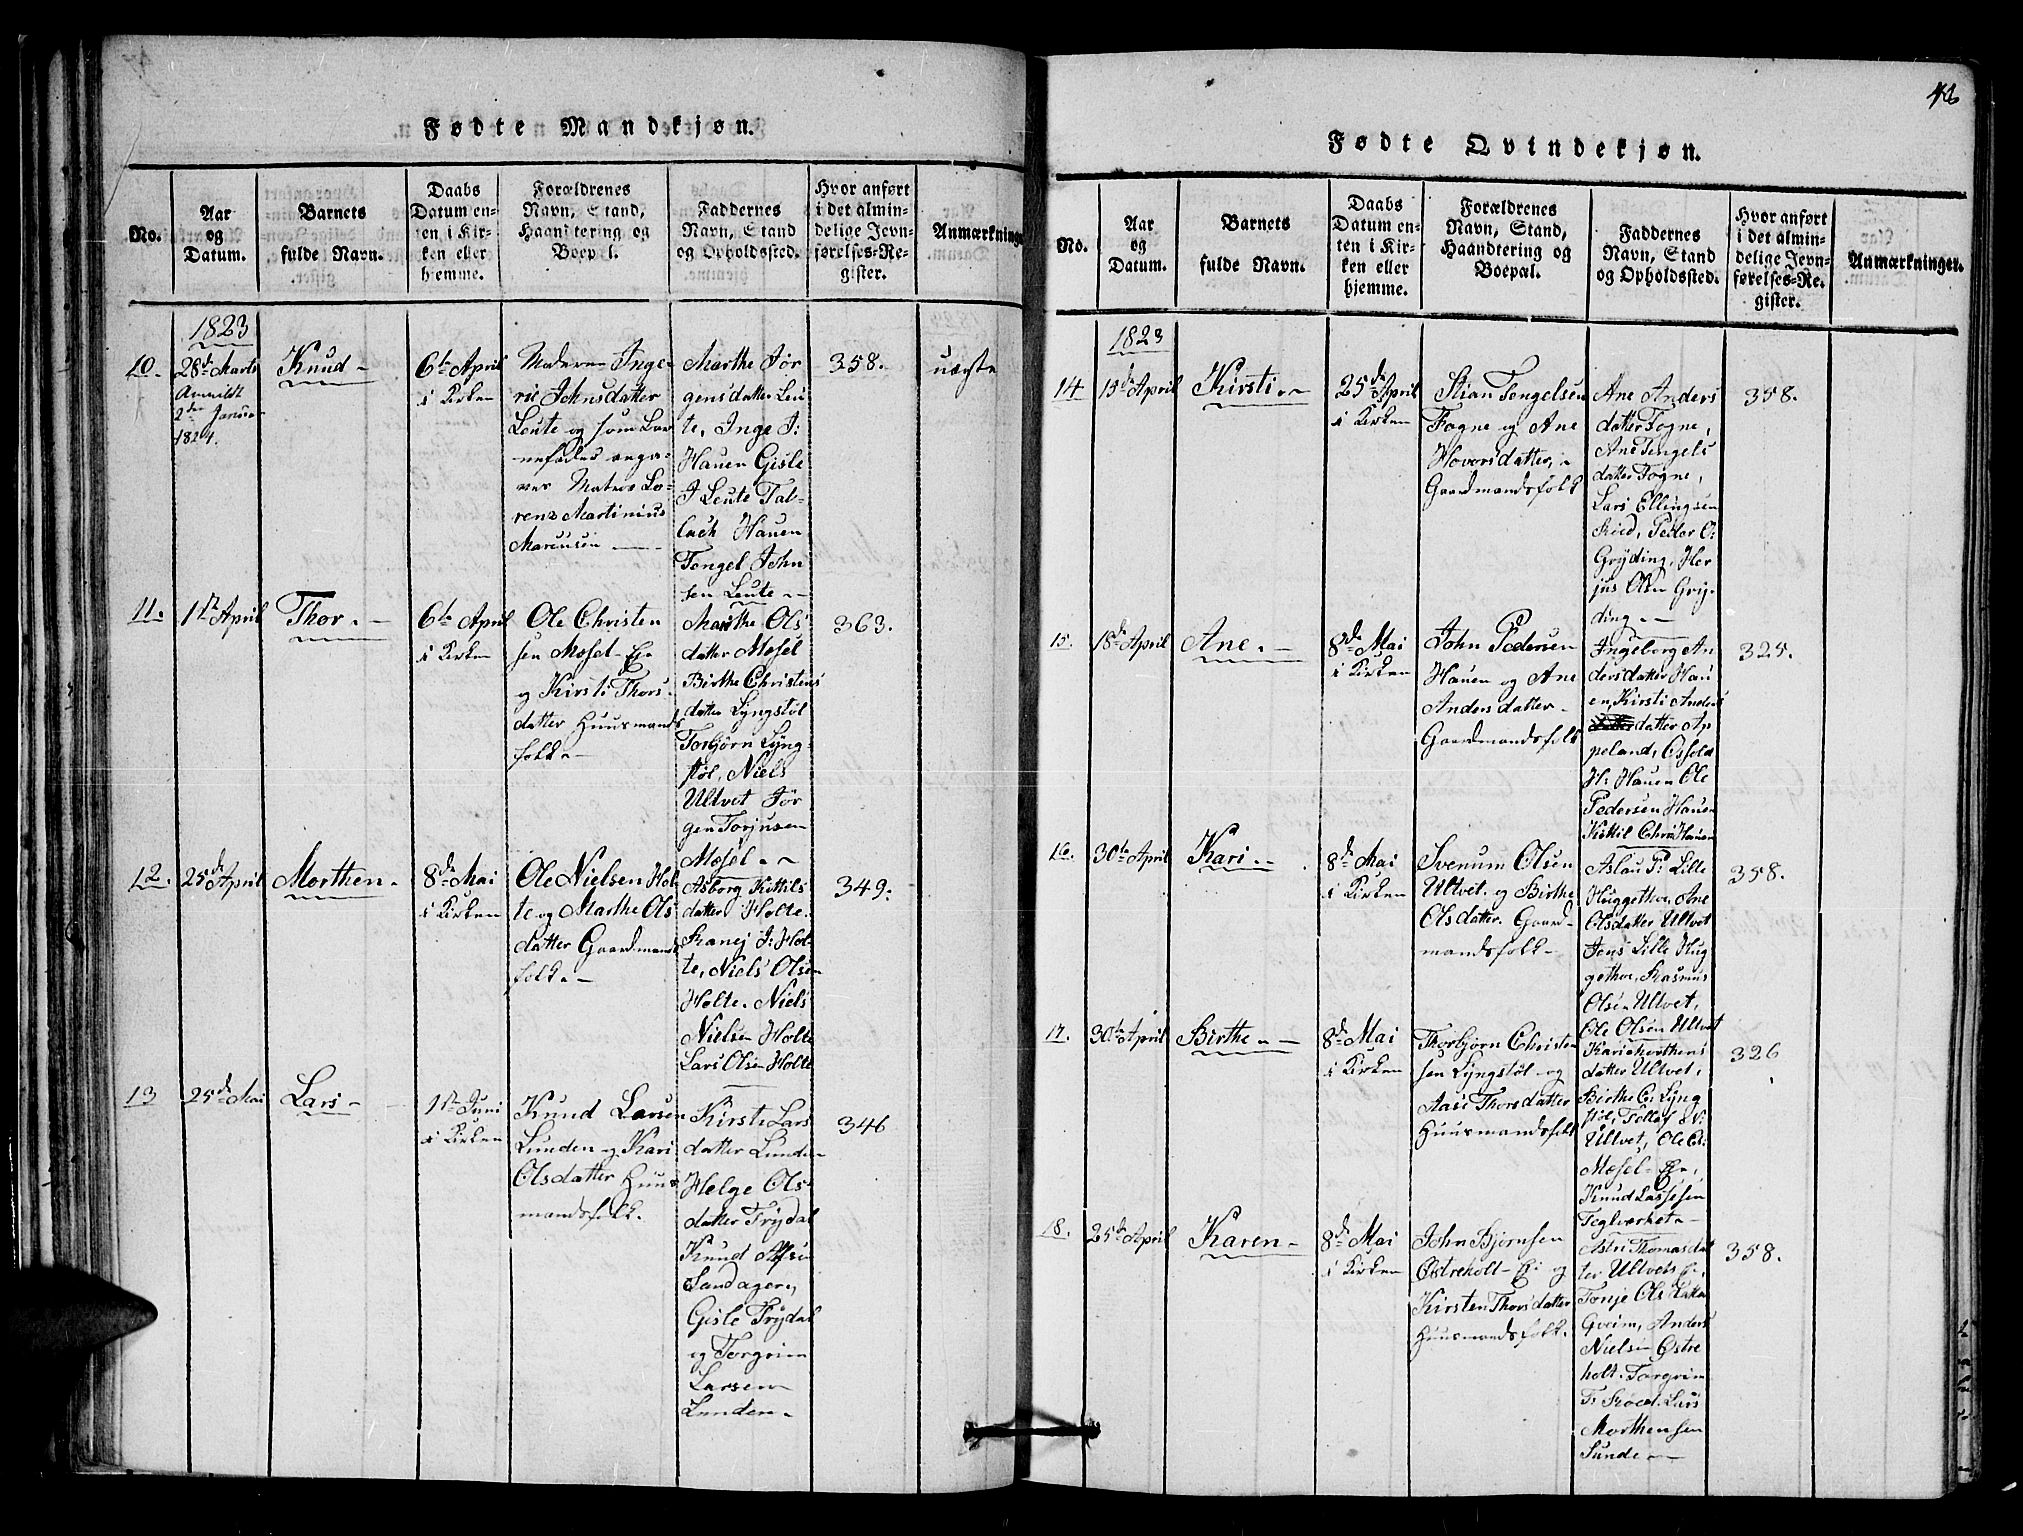 Fødte Mandkjøn.
No.
Aar
og
Datum.
Barnets
fulde Navn.
Daabs
Datum en-
ten i Kir-
ken eller
hjemme.
Forældrenes
Navn, Stand,
Haandtering og
Boepæl.
Faddernes
Navn, Stand
og Opholdssted.
Hvor anført
i det almin-
delige Jevn-
førelses-Re-
gister.
Anmærkninger
1823
10.
28de Marts
2den Janua
1824.
Knud
6te April
i Kirken
Moderen Inge-
ri Johnsdatter
Leute og som Bar
nefader anga-
ves Matros Lo-
renz Martinius
Marcusen
Marthe Jør
gensdatter Leu
te, Inge J:
Hauen Gisle
J Leute Tal-
lach Hauen
Tengel John
sen Leute
358.
uægte
11.
1te April
Thor.
6te April
i Kirken
Ole Christen
sen Mosel-Ei-
og Kirsti Thors
datter Huusmands
folk
Marthe Ols
datter Mosel
Birthe Christens
datter Lyngstøl
Torbjørn Lyng-
støl, Niels
Ultvet Jør
gen Torjusen
Mosel.
363.
12.
25de April
Morthen.
8de Mai
i Kirken
Ole Nielsen Hol
te og Marthe Ols
datter Gaardmands
folk
Asborg Kittils
datter Holte.
Ranej J: Hol-
te, Niels Olsen
Holte. Niels
Nielsen Holte
Lars Olsen Holte
349.
13
25de Mai
Lars
1te Juni
i Kirken
Knud Larsen
Lunden og Kari
Olsdatter Huus
mandsfolk.
Kirsti Lars
datter Lunden
Helge Ols
datter Frydal
Knud
Sandageren,
Gisle Frydal
og Torgrim
Larsen
Lunden
346
Fødte Qvindekjøn.
No.
Aar
og
Datum.
Barnets
fulde Navn.
Daabs
Datum en-
ten i Kir-
ken eller
hjemme.
Forældrenes
Navn, Stand,
Haandtering og
Boepæl.
Faddernes
Navn, Stand
og Opholdssted.
Hvor anført
i det almin-
delige Jevn-
førelses-Re-
gister.
Anmærkninger.
1823
14
15de April
Kirsti.
25de April
i Kirken
Stian Tengelsen
Fogne og Ane
Hovorsdatter,
Gaardmandsfolk
Ane Anders
datter Fogne,
Ane Tengels
datter Fogne,
Lars Ellingsen
Ried, Peder O:
Gryding, Her
jus Olsn Gry-
ding
358.
15.
18de April
Ane.
8de Mai
i Kirken
John Pedersen
Hauen og Ane
Andersdatter
Gaardmandsfolk
Ingeborg An
dersdatter Hau
en, Kirsti Anders
datter Ap
peland, Osfold
H: Hauen Ole
Pedersen Hauen
Kittil Chrs: Hauen
325.
16.
30te April
Kari
8de Mai
i Kirken
Svenum Olsen
Ultvet og Birthe
Olsdatter. Gaard-
mandsfolk
Aslau P: Lille
Huggethor, Ane
Olsdatter Ultvet
Jens Lille Hug
gethor, Rasmus
Olsen Ultvet,
Ole Olsen Ultvet
358.
17.
30te April
Birthe
8de Mai
i Kirken
Thorbjørn Christen
sen Lyngstøl og
Aase Thorsdatter
Huusmandsfolk
Kari Morthens
datter Ultvet,
Birthe C: Lyng
støl, Tellef N:
Ultvet, Ole C:
Mosel-Ei,
Knud Lassesen
Teglværket
326
18.
25de April
Karen
8de Mai
i Kirken
John Bjørnsen
Østreholt-Ei og
Kirsten Thorsdatter
Huusmandsfolk.
Astri Thomasdat
ter Ultvets Ei
Tonje Olsdatter
Gveim, Anders
Nielsen Østre
holt. Torgrim
T: Røed. Lars
Morthensen
Sunde
358.